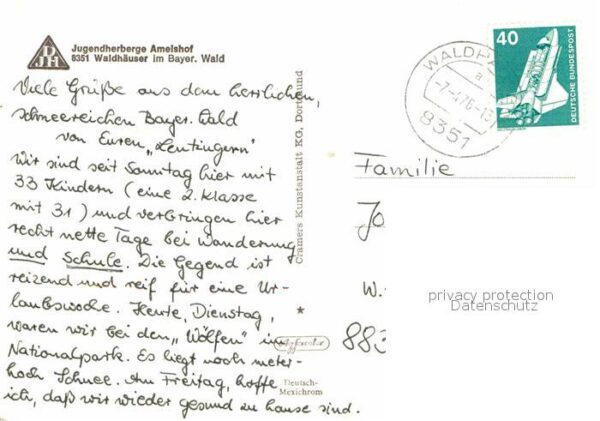 Jugendherberge Amelshof
8351 Waldhäuser im Bayer. Wald
DJH
Viele Grüße aus dem herrlichen,
schneereichen Bayer. Wald
von Euren „Lentingern"
Wir sind seit Sonntag hier mit
33 Kindern (eine 2. Klasse
mit 31) und verbringen hier
recht nette Tage bei Wanderung
und Schule. Die Gegend ist
reizend und reif für eine Ur-
laubswoche. Heute, Dienstag,
waren wir bei den „Wölfen" im
Nationalpark. Es liegt noch meter-
hoch Schnee. Am Freitag, hoffe
ich, daß wir wieder gesund zu hause sind.
Cramers Kunstanstalt KG, Dortmund
Deutsch-
Mexichrom
WALDH
a
8351
40
DEUTSCHE BUNDESPOST
Familie
Jo
W.
883
privacy protection
Datenschutz